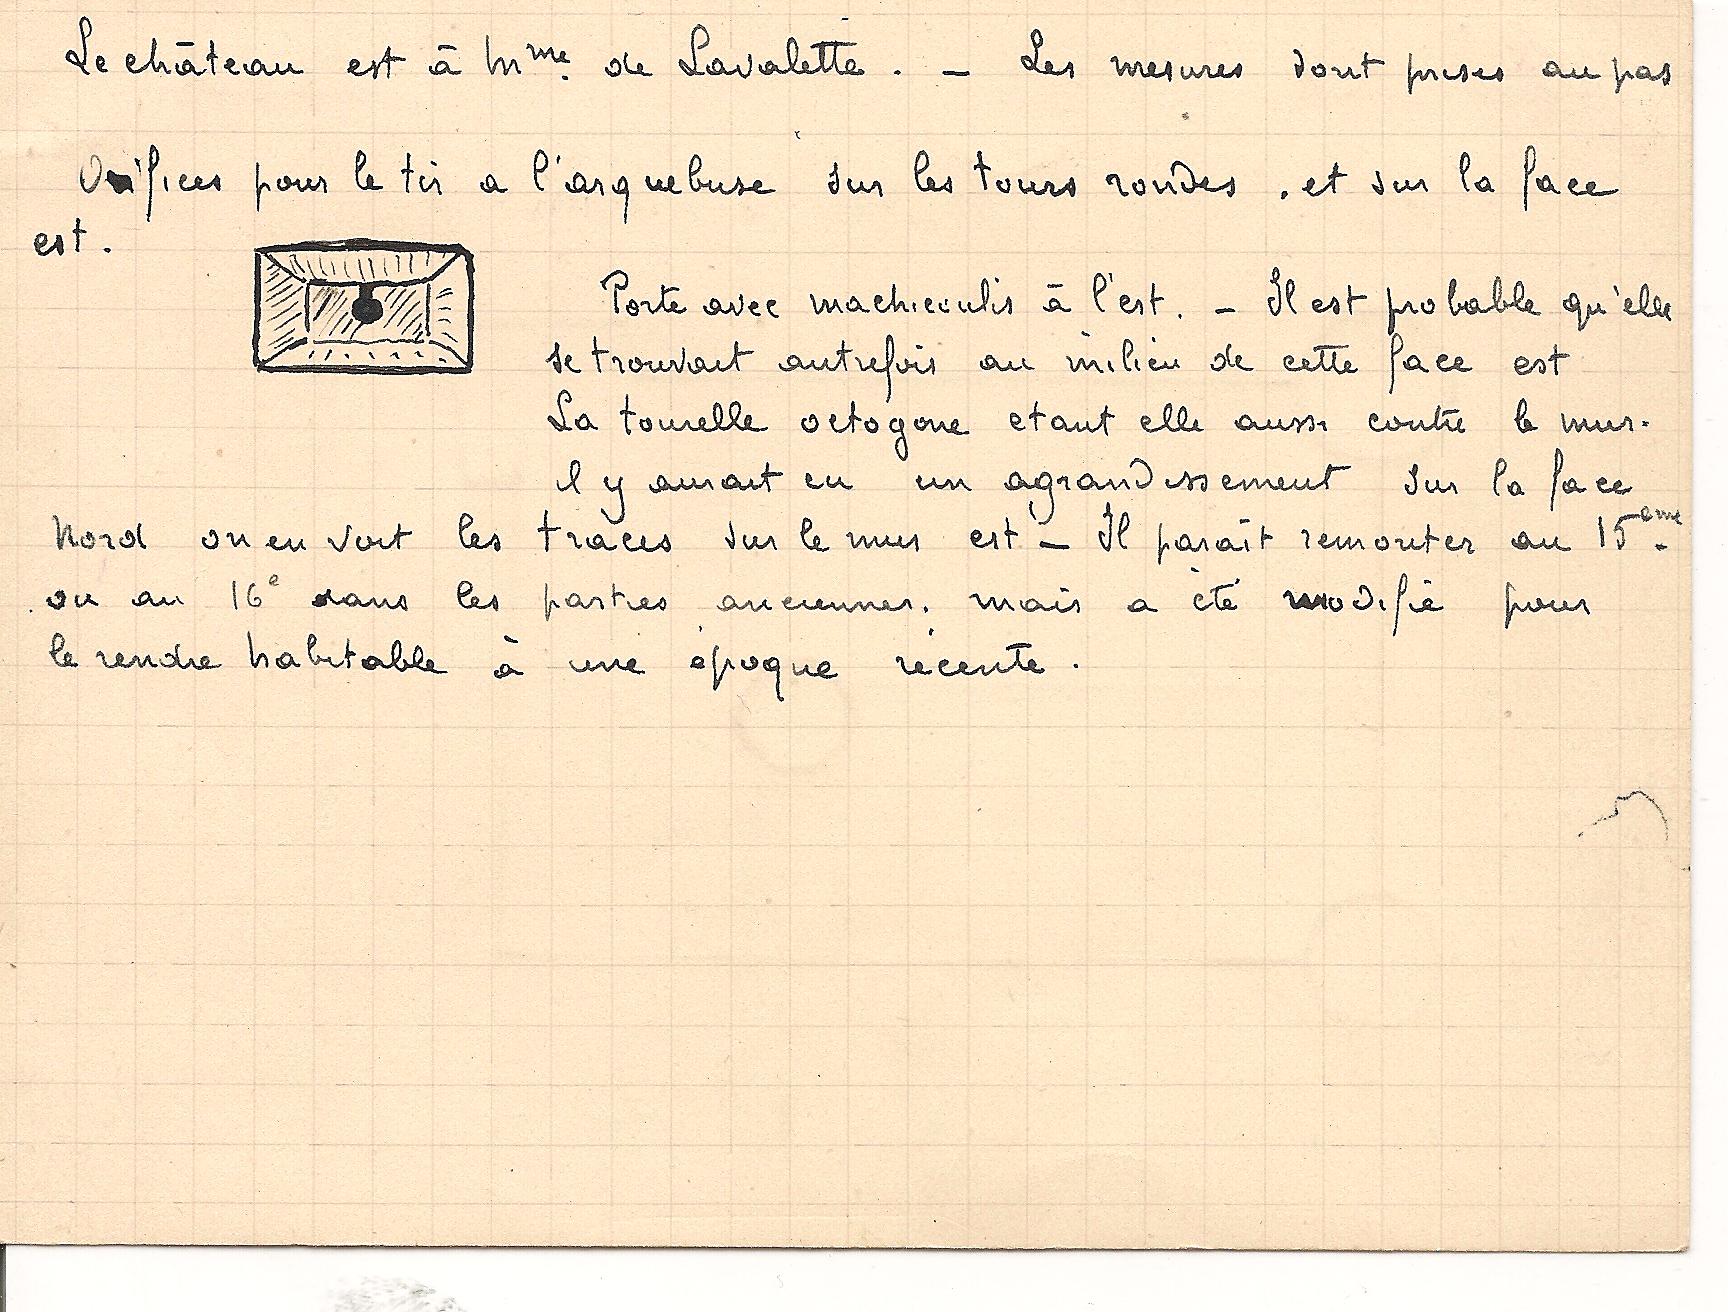 Le château est à Mme. de Lavalette. - Les mesures sont prises au pas
Orifices pour le tir a l'arquebuse sur les tours rondes, et sur la face
est.
Porte avec machicoulis à l'est. - Il est probable qu'elle
se trouvait autrefois au milieu de cette face est
La tourelle octogone etant elle aussi contre le mur.
il y aurait eu un agrandissement sur la face
Nord on en voit les traces sur le mur est - Il parait remonter au 15ème
ou au 16e dans les parties anciennes, mais a été modifié pour
le rendre habitable à une époque récente.